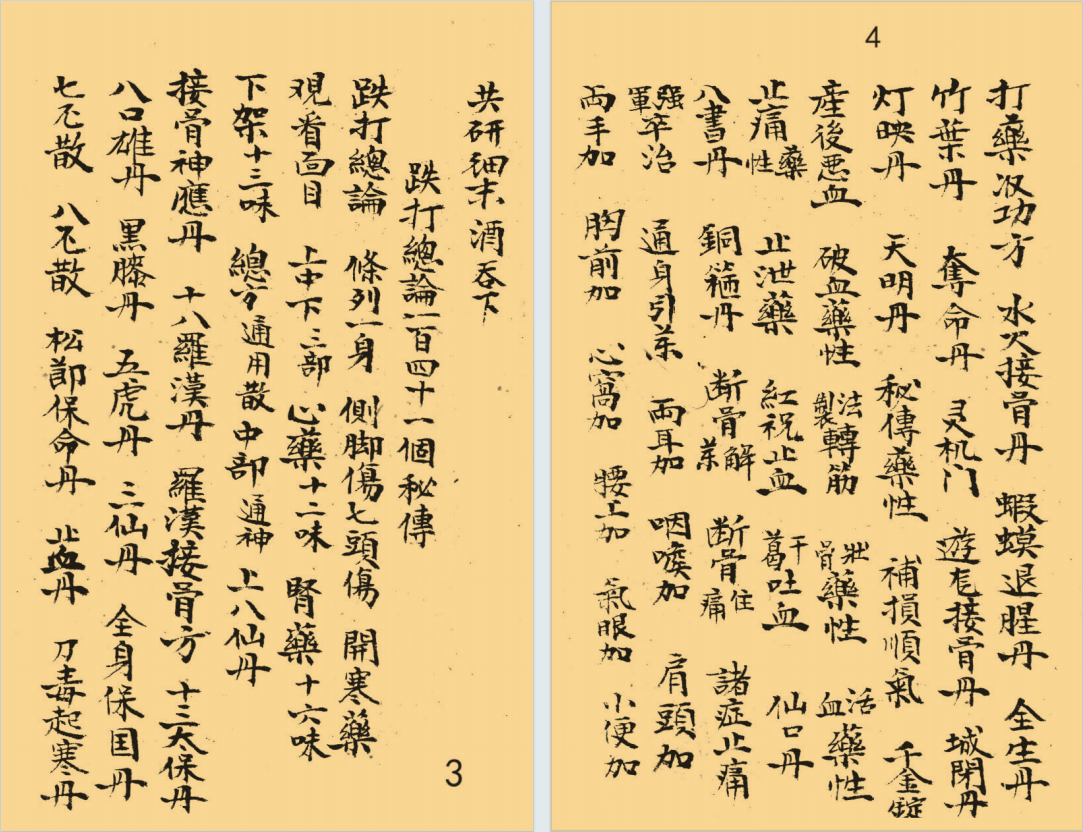 共研細末酒吞下
跌打總論一百四十一個秘傳
跌打總論 條列一身 側脚傷七頭傷 開寒藥
观看面目 上中下三部 心藥十二味 腎藥十六味
下架十三味 總方通用散 中部通神 上八仙丹
接骨神應丹 十八羅漢丹 羅漢接骨方 十三太保丹
八口雄丹 黒滕丹 五虎丹 三仙丹 全身保国丹
七厄散 八厄散 松節保命丹 止血丹 刀毒起寒丹
3
4
打藥汉功方 水火接骨丹 蝦蟆退腥丹 全生丹
竹葉丹 奪命丹 灵机门 遊宅接骨丹 城閉丹
灯映丹 天明丹 秘傳藥性 補損順氣 千金錠
產後悪血 破血藥性 法製轉筋 壯骨藥性 活血藥性
止痛藥性 止泄藥 紅祝止血 干葛吐血 仙口丹
八書丹 銅箍丹 断骨解茶 断骨住痛 諸症止痛
强軍卒治 通身引茶 両耳加 咽喉加 肩頭加
両手加 胸前加 心窝加 腰上加 氣眼加 小便加